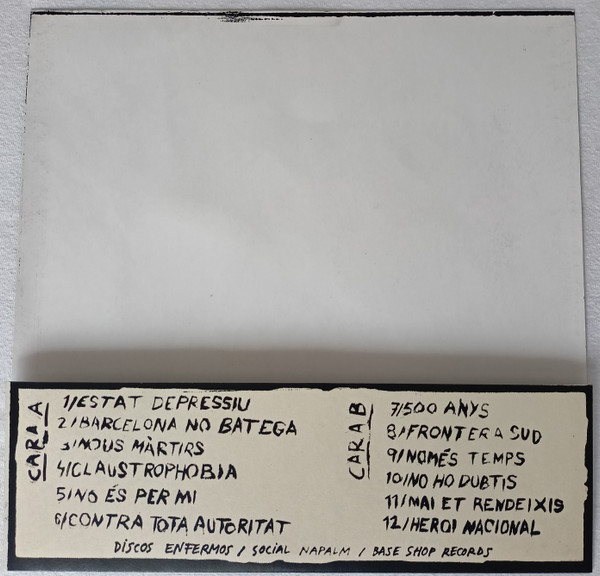 CARA A
1/ESTAT DEPRESSIU
2/BARCELONA NO BATEGA
3/NOUS MÀRTIRS
4/CLAUSTROPHOBIA
5/NO ÉS PER MI
6/CONTRA TOTA AUTORITAT
CARA B
7/500 ANYS
8/FRONTERA SUD
9/NOMÉS TEMPS
10/NO HO DUBTIS
11/MAI ET RENDEIXIS
12/HEROI NACIONAL
DISCOS ENFERMOS / SOCIAL NAPALM / BASE SHOP RECORDS